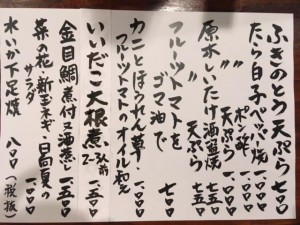 ふきのとう天ぷら 七〇〇
たら白子ベッピン焼
〃 ポン酢 一、〇〇〇
〃 天ぷら 一、〇〇〇
原木しいたけ酒塩焼 七五〇
〃 天ぷら 七五〇
フルーツトマトを
ゴマ油で 七〇〇
カニとほうれん草
フルーツトマトのオイル和え 一、〇〇〇
いいだこ大根煮 2〜3人前 一、五〇〇
金目鯛煮付又油蒸し 一、五〇〇
菜の花 新玉ネギ 日向夏の
サラダ 一、〇〇〇
水いか下足焼 八〇〇(税抜)